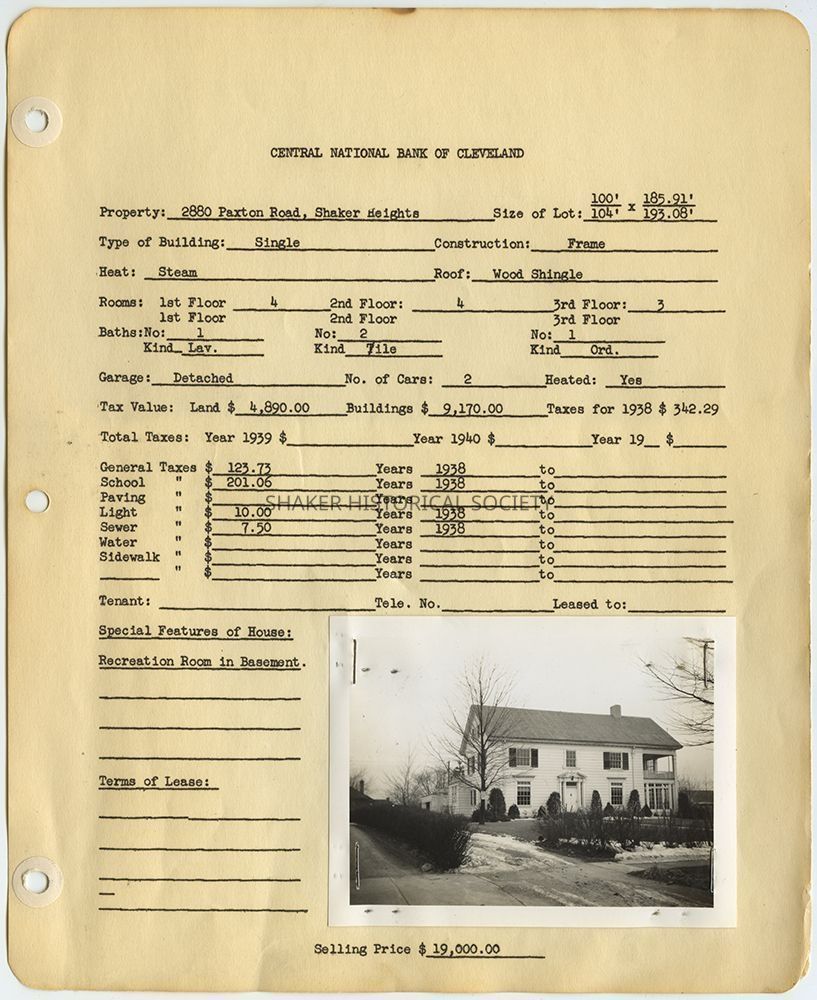 CENTRAL NATIONAL BANK OF CLEVELAND
Property: 2880 Paxton Road, Shaker Heights Size of Lot: 100' x 185.91'
104' 193.08'
Type of Building: Single Construction: Frame
Heat: Steam Roof: Wood Shingle
Rooms: 1st Floor 4 2nd Floor: 4 3rd Floor: 3
1st Floor 2nd Floor 3rd Floor
Baths:No: 1 No: 2 No: 1
Kind Lav. Kind Tile Kind Ord.
Garage: Detached No. of Cars: 2 Heated: Yes
Tax Value: Land $ 4,890.00 Buildings $ 9,170.00 Taxes for 1938 $ 342.29
Total Taxes: Year 1939 $ Year 1940 $ Year 19 $
General Taxes $ 123.73 Years 1938 to
School " $ 201.06 Years 1938 to
Paving " $ Years to
SHAKER HISTORICAL SOCIETY
Light " $ 10.00 Years 1938 to
Sewer " $ 7.50 Years 1938 to
Water " $ Years to
Sidewalk " $ Years to
" $ Years to
Tenant: Tele. No. Leased to:
Special Features of House:
Recreation Room in Basement.
Terms of Lease:
Selling Price $ 19,000.00